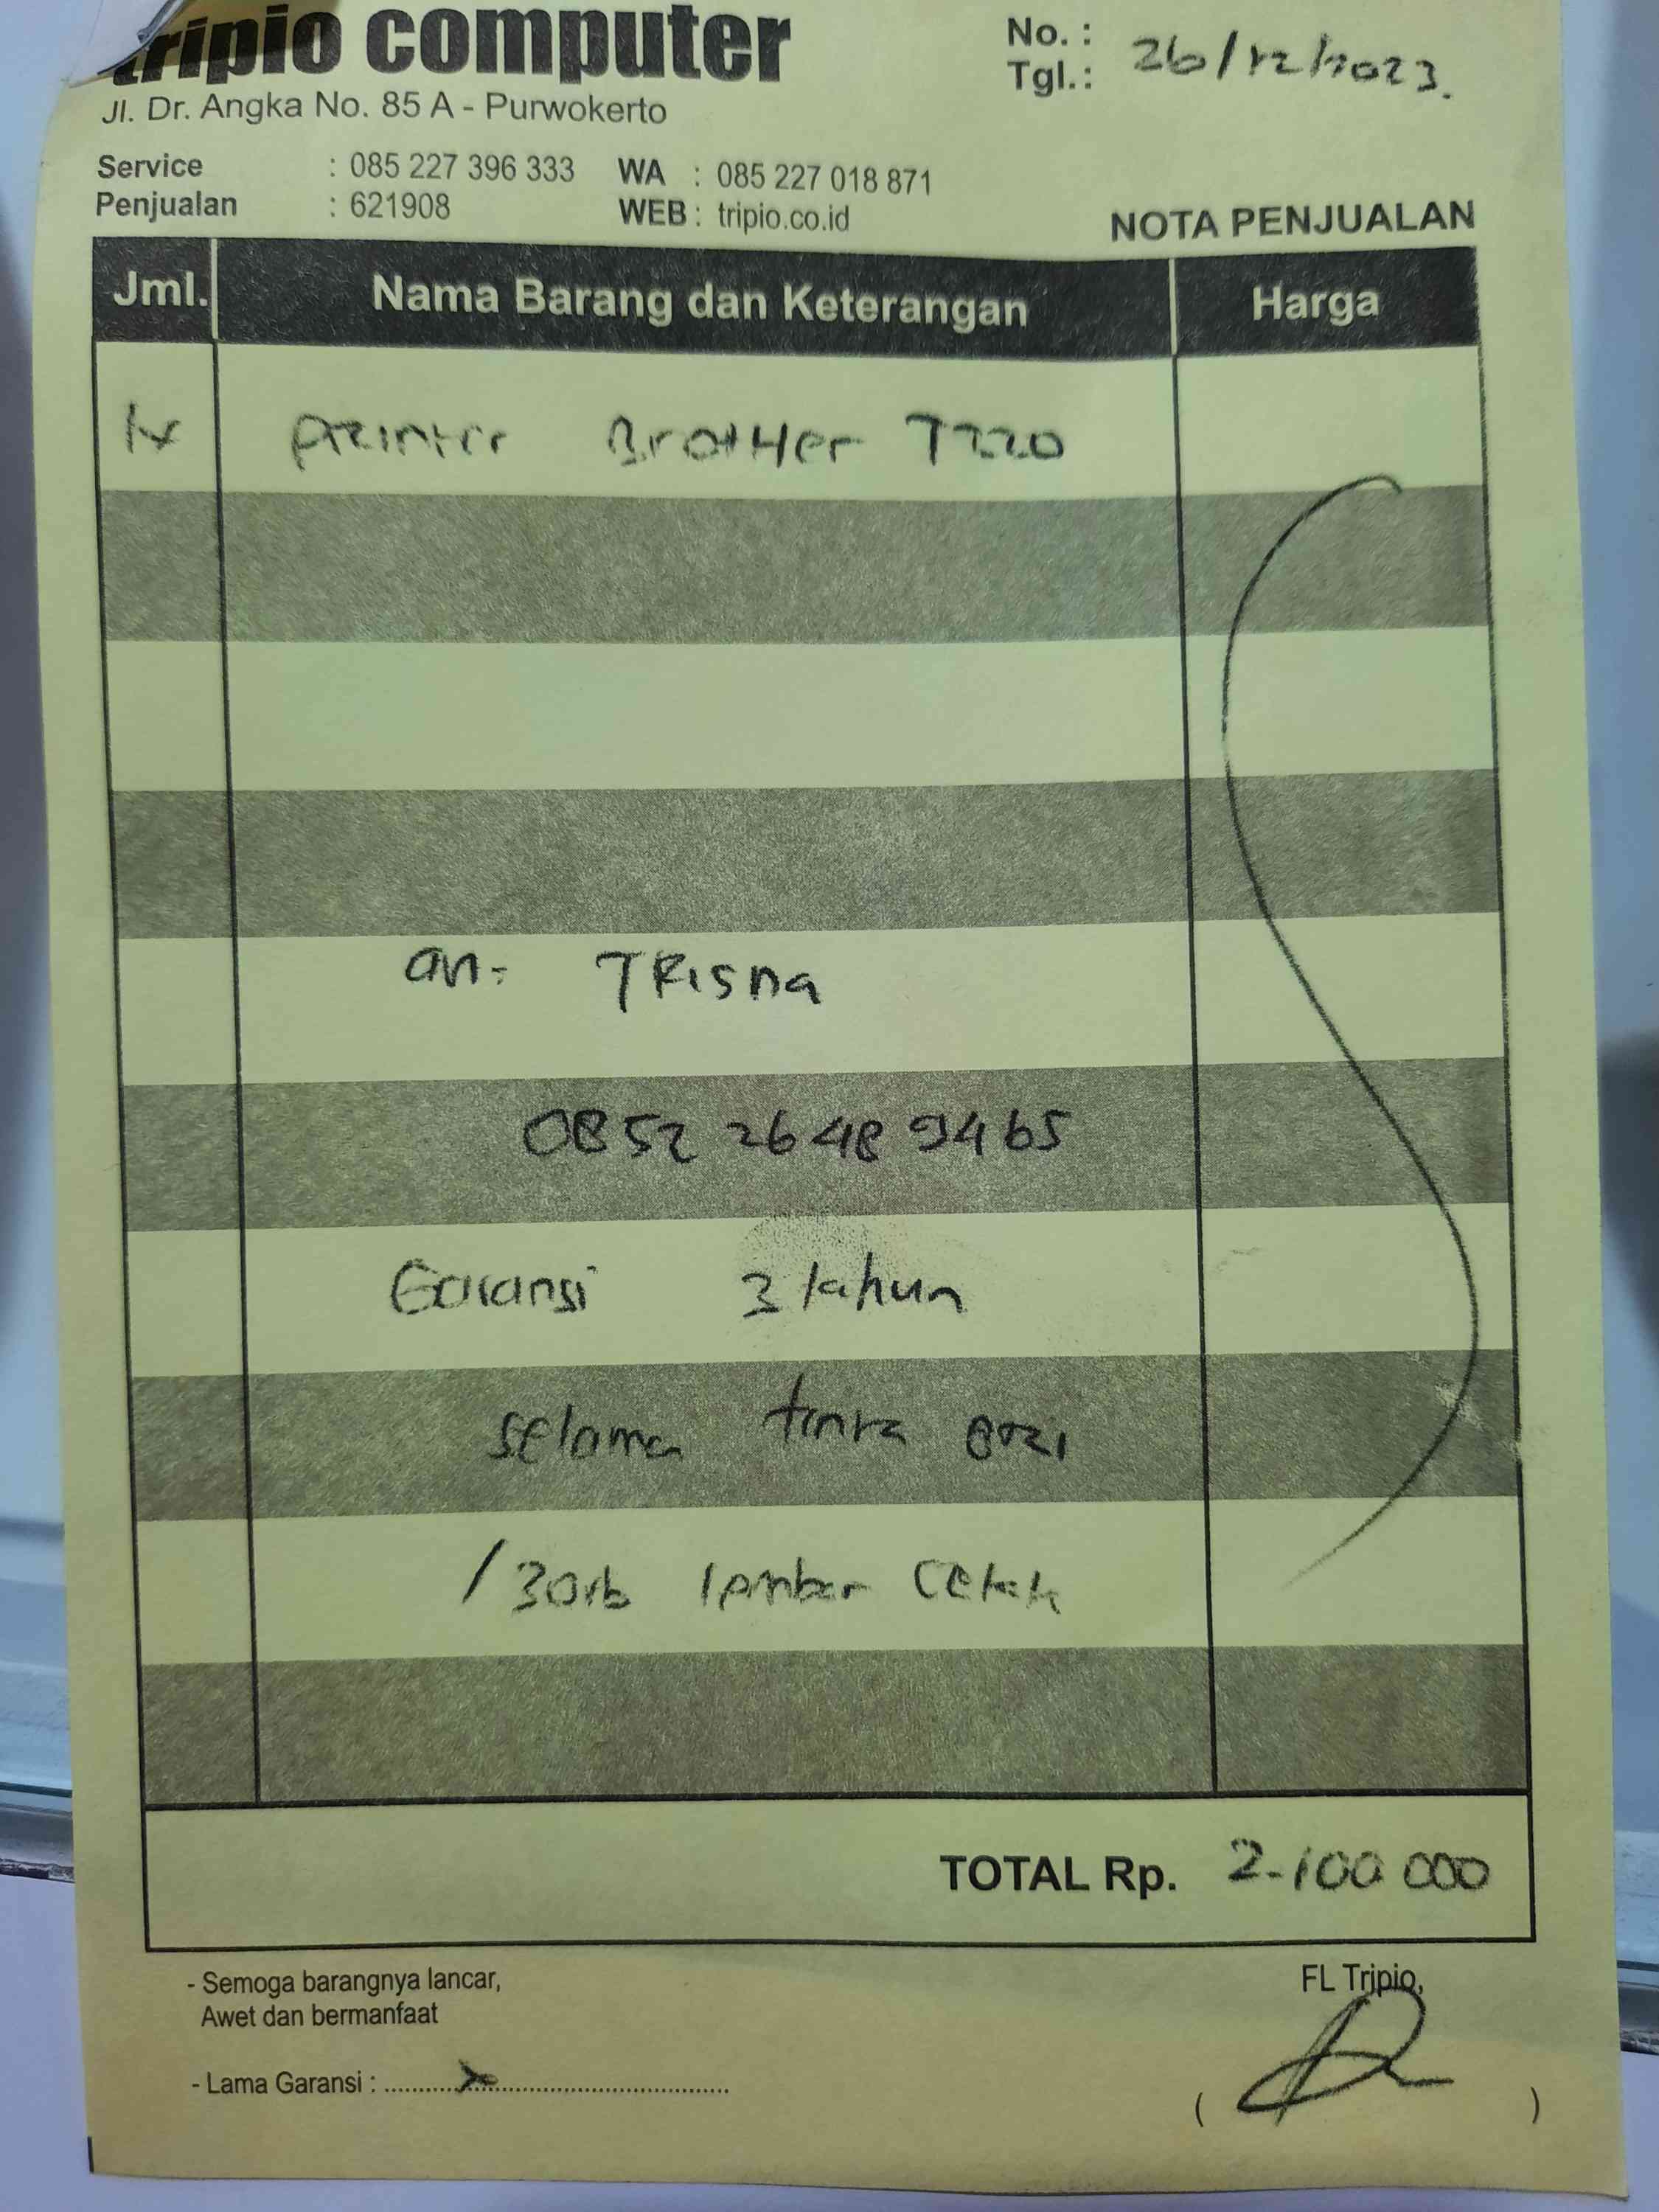 tripio computer
Jl. Dr. Angka No. 85 A - Purwokerto
No. :
Tgl. : 26/12/2023.
Service : 085 227 396 333 WA : 085 227 018 871
Penjualan : 621908 WEB : tripio.co.id
NOTA PENJUALAN
Jml. Nama Barang dan Keterangan Harga
1x Printer Brother T220
an. TRisna
0852 2648 9465
Garansi 3 tahun
selama tinta ori
/30rb lembar cetak
TOTAL Rp. 2.100 000
- Semoga barangnya lancar,
Awet dan bermanfaat
FL Tripio,
- Lama Garansi : ..........
( )